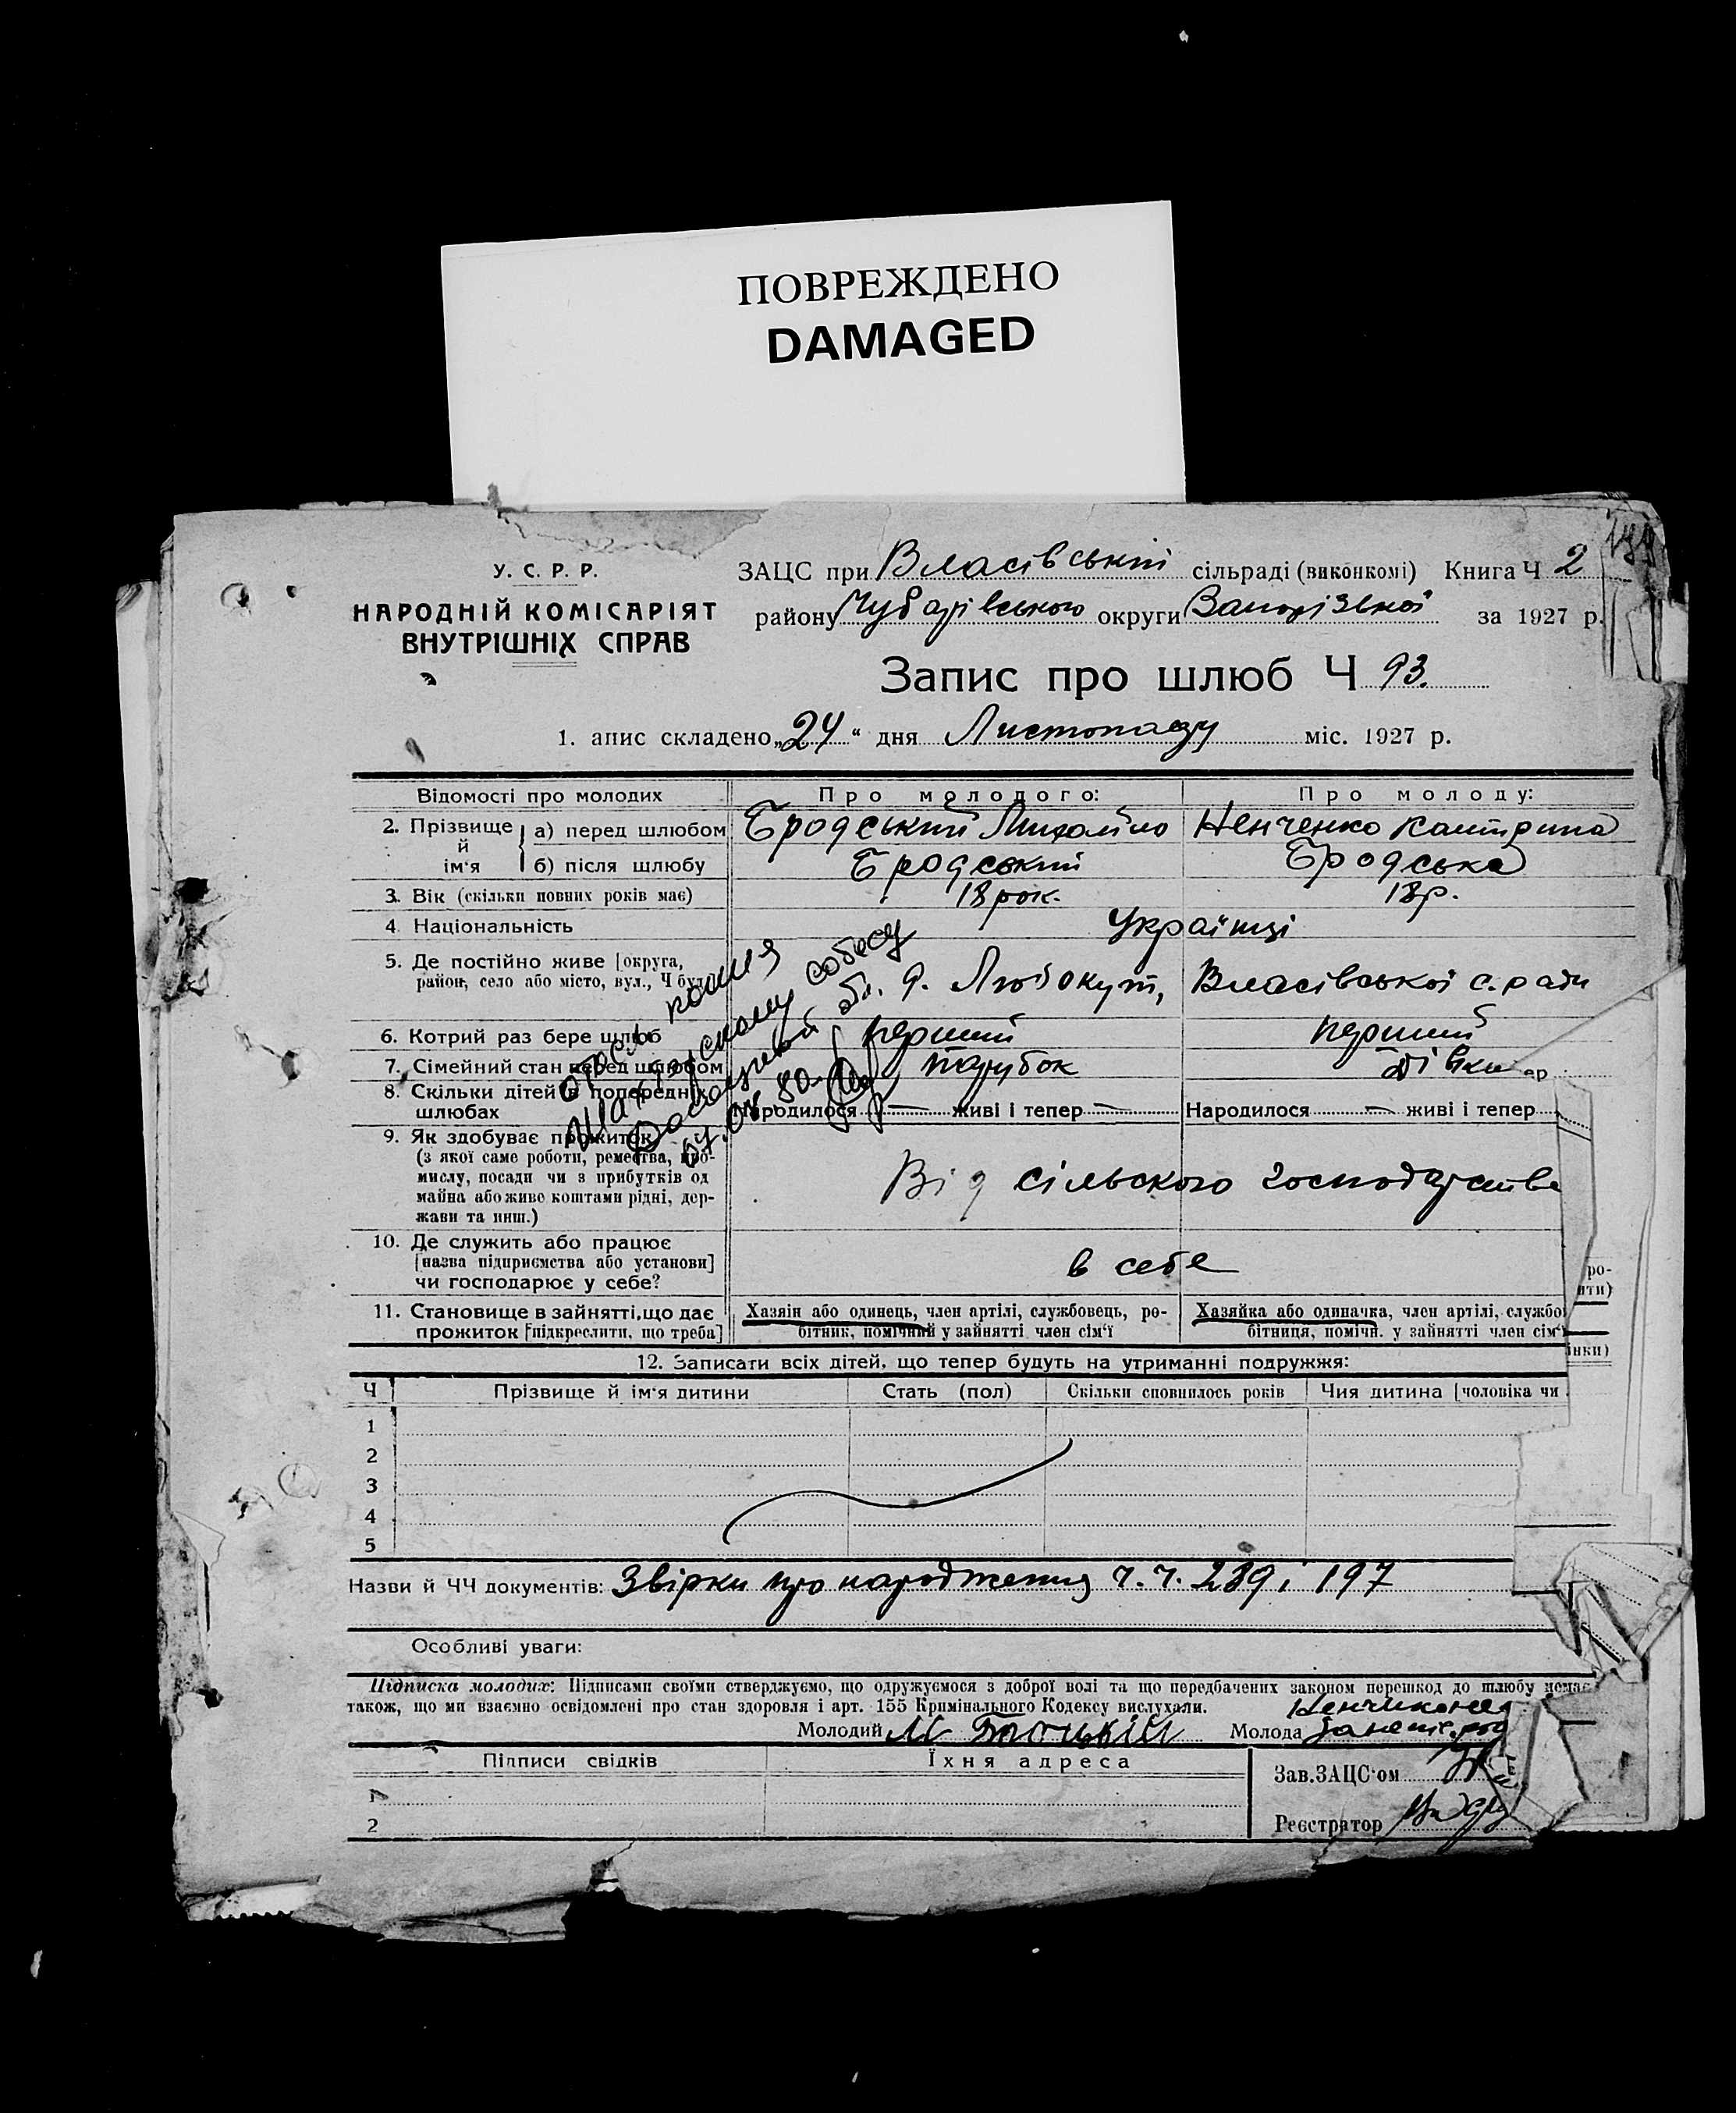 ПОВРЕЖДЕНО
DAMAGED
У. С. Р. Р.
НАРОДНІЙ КОМІСАРІЯТ
ВНУТРІШНІХ СПРАВ
ЗАЦС при Власівській сільраді (виконкомі) Книга Ч 2
району Чубарівського округи Запорізької за 1927 р.
Запис про шлюб Ч 93.
1. апис складено „24“ дня Листопаду міс. 1927 р.
Відомості про молодих Про молодого: Про молоду:
2. Прізвище й ім'я а) перед шлюбом Бродський Михайло Ненченко Катерина
б) після шлюбу Бродський Бродська
3. Вік (скільки повних років має) 18 рок. 18 р.
4 Національність Українці
5. Де постійно живе [округа,
район, село або місто, вул., Ч буд. Любокут, Власівської с. ради
6. Котрий раз бере шлюб перший перший
7. Сімейний стан перед шлюбом парубок дівка
8. Скільки дітей в попередніх
шлюбах Народилося — живі і тепер — Народилося — живі і тепер
9. Як здобуває прожиток
(з якої саме роботи, ремества, про-
мислу, посади чи з прибутків од
майна або живе коштами рідні, дер-
жави та инш.)
Від сільського господарства
10. Де служить або працює
[назва підприємства або установи]
чи господарює у себе?
в себе
11. Становище в зайнятті, що дає
прожиток [підкреслити, що треба]
Хазяін або одинець, член артілі, службовець, ро-
бітник, помічний у зайнятті член сім'ї
Хазяйка або одиначка, член артілі, службо
бітниця, помічн. у зайнятті член сім'
копия
Шахтерскому собесу
Донецкой обл.
12. Записати всіх дітей, що тепер будуть на утриманні подружжя:
Ч Прізвище й ім'я дитини Стать (пол) Скільки сповнилось років Чия дитина [чоловіка чи
1
2
3
4
5
Назви й ЧЧ документів: Звірки про народження ч.ч. 239 і 197
Особливі уваги:
Підписка молодих: Підписами своїми стверджуємо, що одружуємося з доброї волі та що передбачених законом перешкод до шлюбу немає
також, що ми взаємно освідомлені про стан здоровля і арт. 155 Кримінального Кодексу вислухали.
Молодий М Молода
Підписи свідків Їхня адреса
Зав. ЗАЦС'ом
1
Реєстратор
2